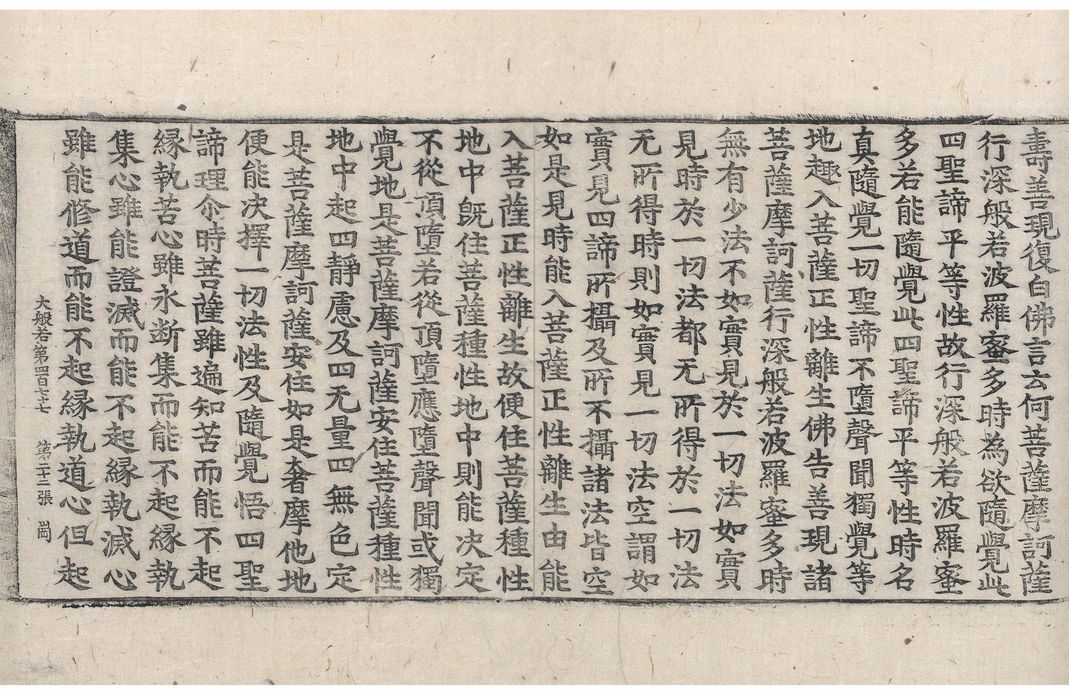 壽善現復白佛言云何菩薩摩訶薩
行深般若波羅蜜多時為欲隨覺此
四聖諦平等性故行深般若波羅蜜
多若能隨覺此四聖諦平等性時名
真隨覺一切聖諦不墮聲聞獨覺等
地趣入菩薩正性離生佛告善現諸
菩薩摩訶薩行深般若波羅蜜多時
無有少法不如實見於一切法如實
見時於一切法都无所得於一切法
无所得時則如實見一切法空謂如
實見四諦所攝及所不攝諸法皆空
如是見時能入菩薩正性離生由能
入菩薩正性離生故便住菩薩種性
地中旣住菩薩種性地中則能決定
不從頂墮若從頂墮應墮聲聞或獨
覺地是菩薩摩訶薩安住菩薩種性
地中起四靜慮及四无量四無色定
是菩薩摩訶薩安住如是奢摩他地
便能決擇一切法性及隨覺悟四聖
諦理尒時菩薩雖遍知苦而能不起
緣執苦心雖永断集而能不起緣執
集心雖能證滅而能不起緣執滅心
雖能修道而能不起緣執道心但起
大般若第四百七十七 第二十二張 崗